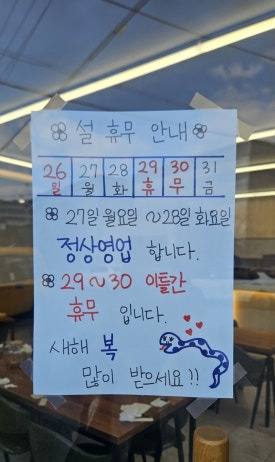 설 휴무 안내
26 27 28 29 30 31
일 월 화 휴 무 금
27일 월요일 ~28일 화요일
정상영업 합니다.
29~30 이틀간
휴무 입니다.
새해 복
많이 받으세요!!